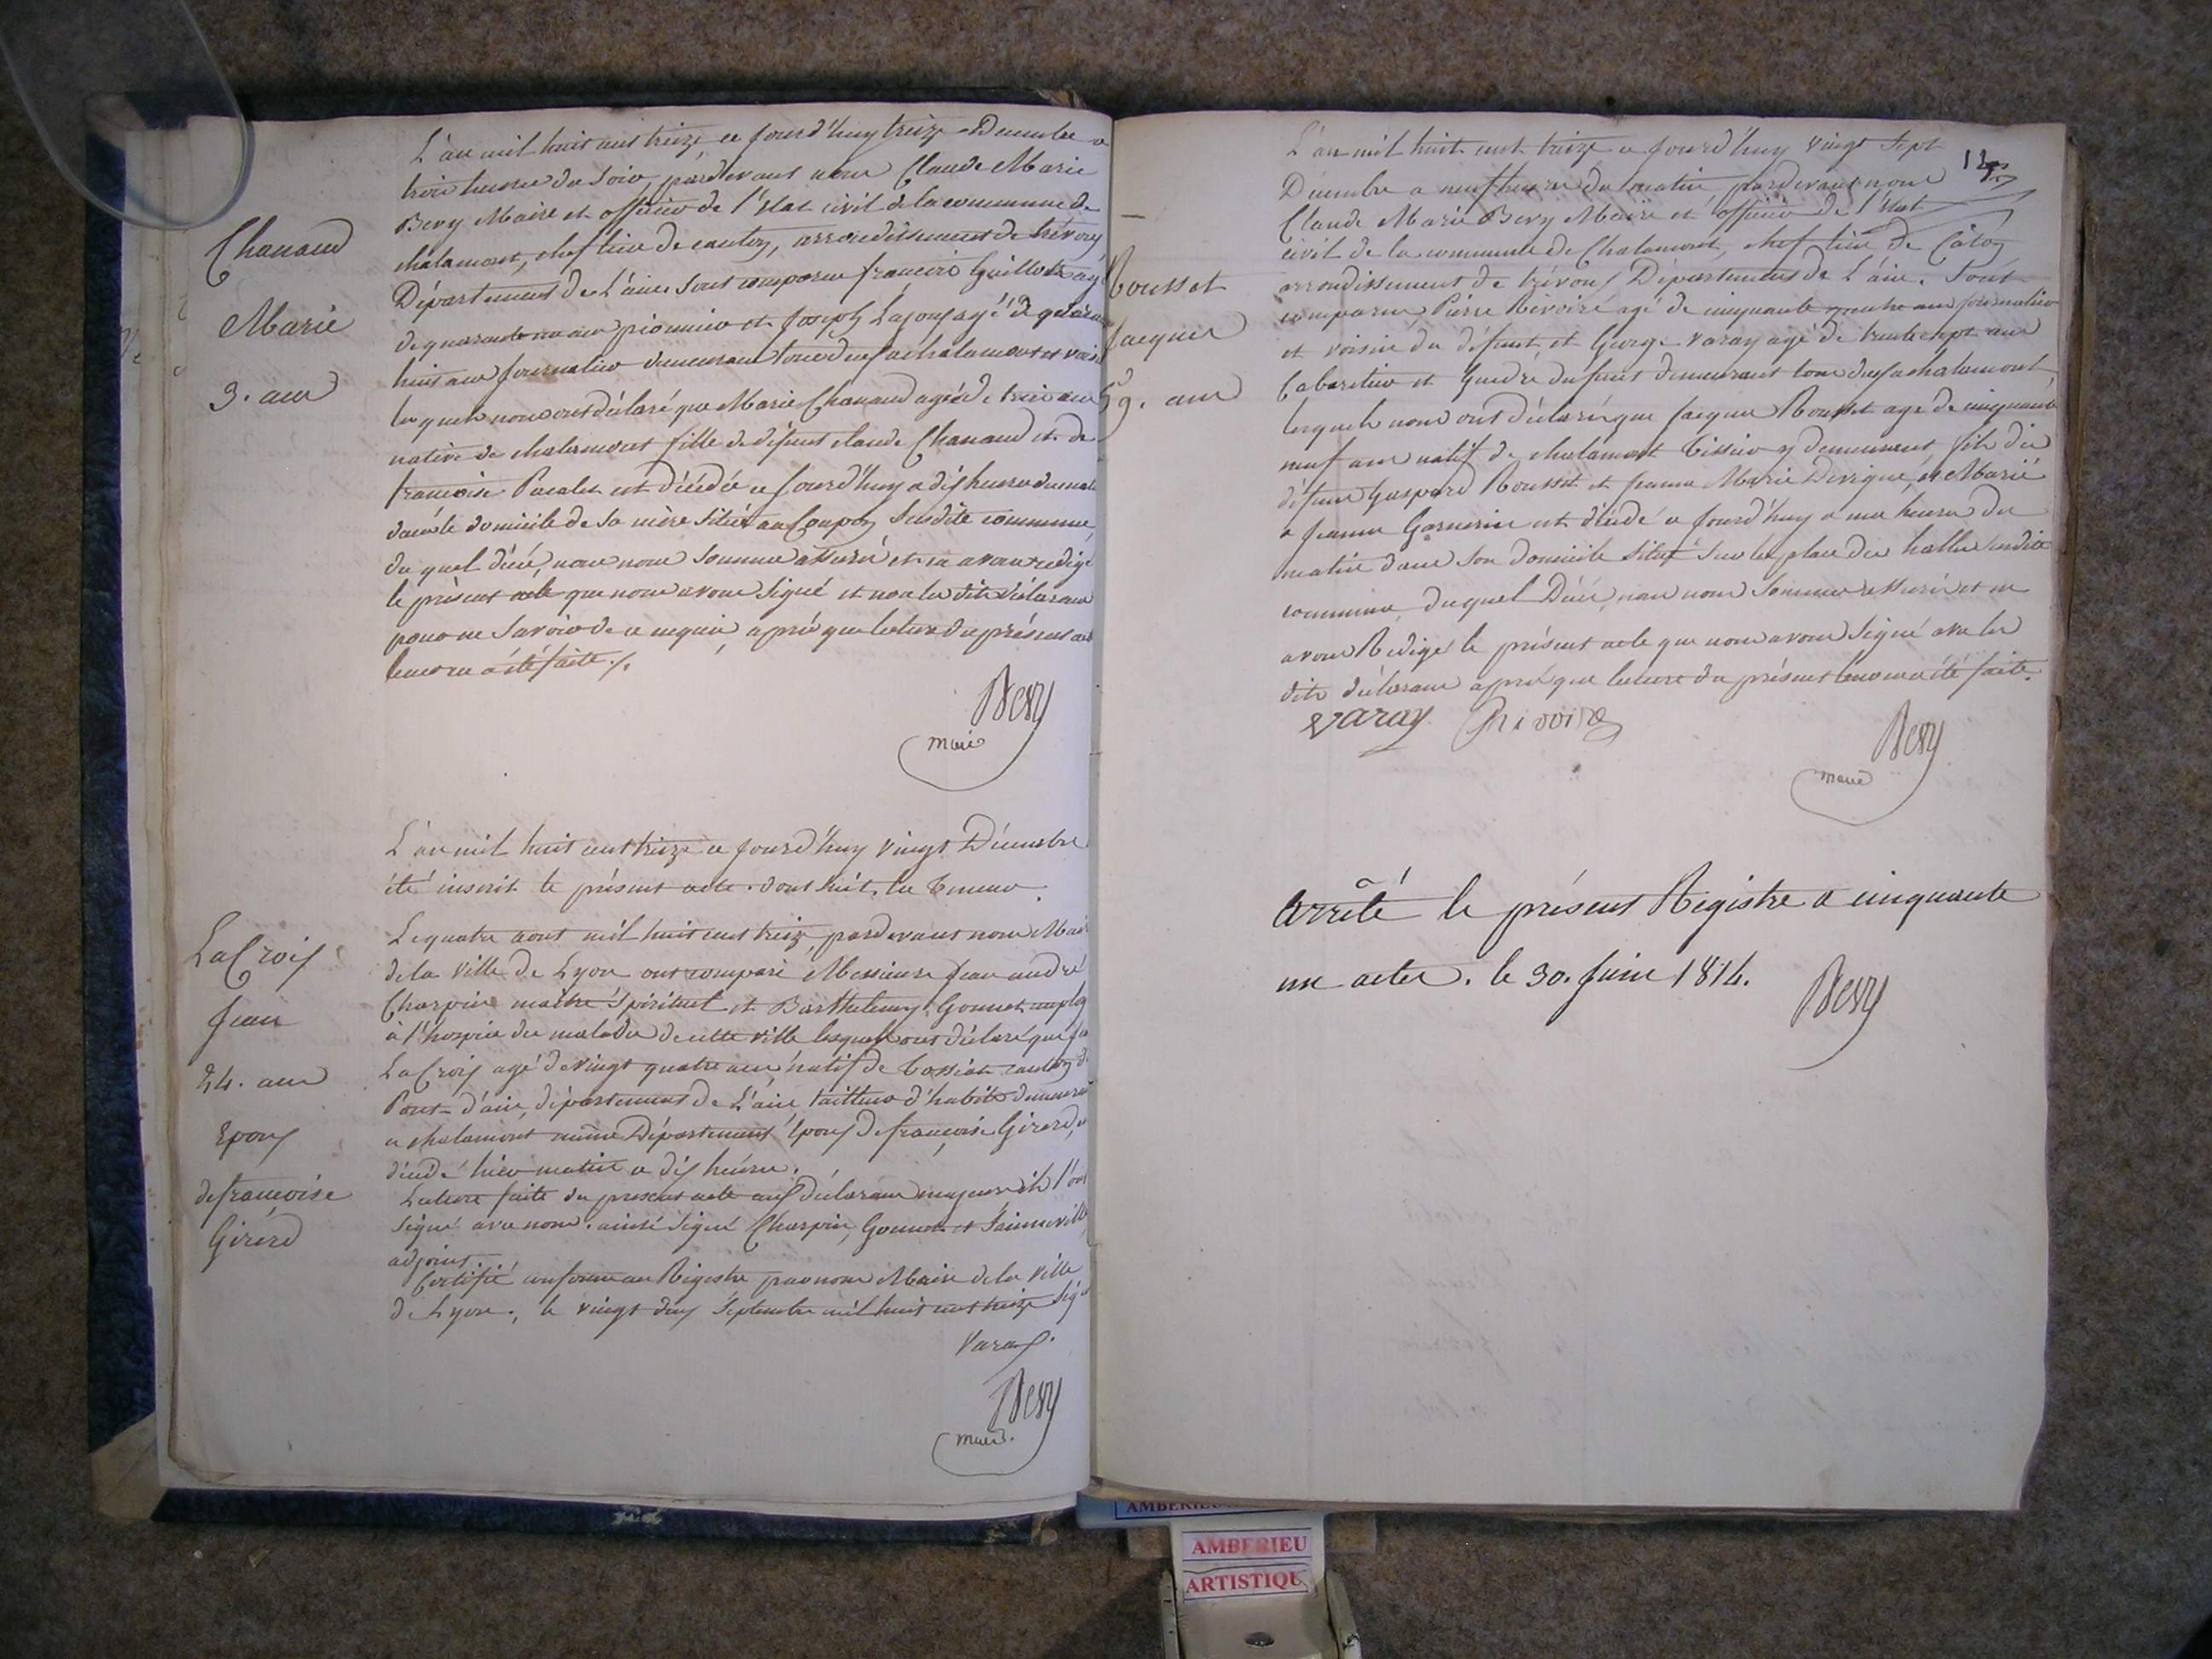 Chanaud
Marie
3. ans
L'an mil huit cent treize, ce jourd'huy treize Decembre a
trois heures du soir, pardevant nous Claude Marie
Bevy Maire et officier de l'état civil de la commune de
chalamont, chef lieu de canton, arrondissement de trévoux,
Département de L'ain. Sont comparus françois Guillot agé
de quarante ans pionnier et Joseph
huit ans journalier demeurant tous deux a chalamont et
lesquels nous ont déclaré que Marie Chanaud agée de trois ans
native de chalamont fille de défunt claude Chanaud et de
françoise est Décédée ce jourd'huy a dix heures du
dans le domicile de sa mère situé au susdite commune,
du quel décé, nous nous sommes assuré et en avons redigé
le présent acte que nous avons signé et non les dits déclarans
pour ne savoir de ce enquis, après que lecture du présent
leur en a été faite ./.
Bevy
maire
L'an mil huit cent treize ce jourd'huy vingt Décembre
été inscrit le présent acte. dont suit, la teneur.
LaCroix
Jean
24. ans
Epoux
de françoise
Girerd
Le quatre aout mil huit cent treize, pardevant nous
de la Ville de Lyon ont comparu Messieurs Jean andré
Charpin maître spirituel et Barthelemy Gonnet
à l'hospice des malades de cette ville lesquels ont déclaré que
LaCroix agé de vingt quatre ans, natif de Tossiat canton
Pont-d'ain, département de L'ain, tailleur d'habits
a chalamont même Département époux de françoise Girerd,
décédé hier matin a dix heures.
Lecture faite du present acte aux déclarans majeurs ils l'ont
signé avec nous. ainsi signé Charpin, Gonnet et
adjoint
Certifié conforme au Régistre par nous Maire de la Ville
de Lyon, le vingt deux Septembre mil huit cent treize
Bevy
maire.
Rousset
Jacques
59. ans
L'an mil huit cent treize ce jourd'huy vingt sept
Décembre a neuf heures du matin, pardevant nous
Claude Marie Bevy Maire et officier de l'état
civil de la commune de Chalamont, chef lieu de Cãton
arrondissement de trévoux Département de L'ain. Sont
comparus, Pierre Rivoire agé de cinquante quatre ans journalier
et voisin du défunt, et George varay agé de trente sept ans
Cabaretier et Gendre du defunt demeurant tous deux a chalamont,
lesquels nous ont déclaré que Jacques Rousset agé de cinquante
neuf ans natif de chalamont Tissier y demeurant, fils du
défunt Gaspard Rousset et Jeanne Marie et Marié
a Jeanne Garnerin est décédé ce jourd'huy a une heure du
matin dans son domicile situé sur la place des halles susdite
commune, duquel Décé, nous nous sommes assuré et en
avons Rédigé le présent acte que nous avons signé avec les
dits déclarans après que lecture du présent leur en a été faite.
varay Rivoire
Bevy
maire
arrêté le présent Registre a cinquante
un actes. le 30. Juin 1814.
Bevy
AMBERIEU
ARTISTIQU